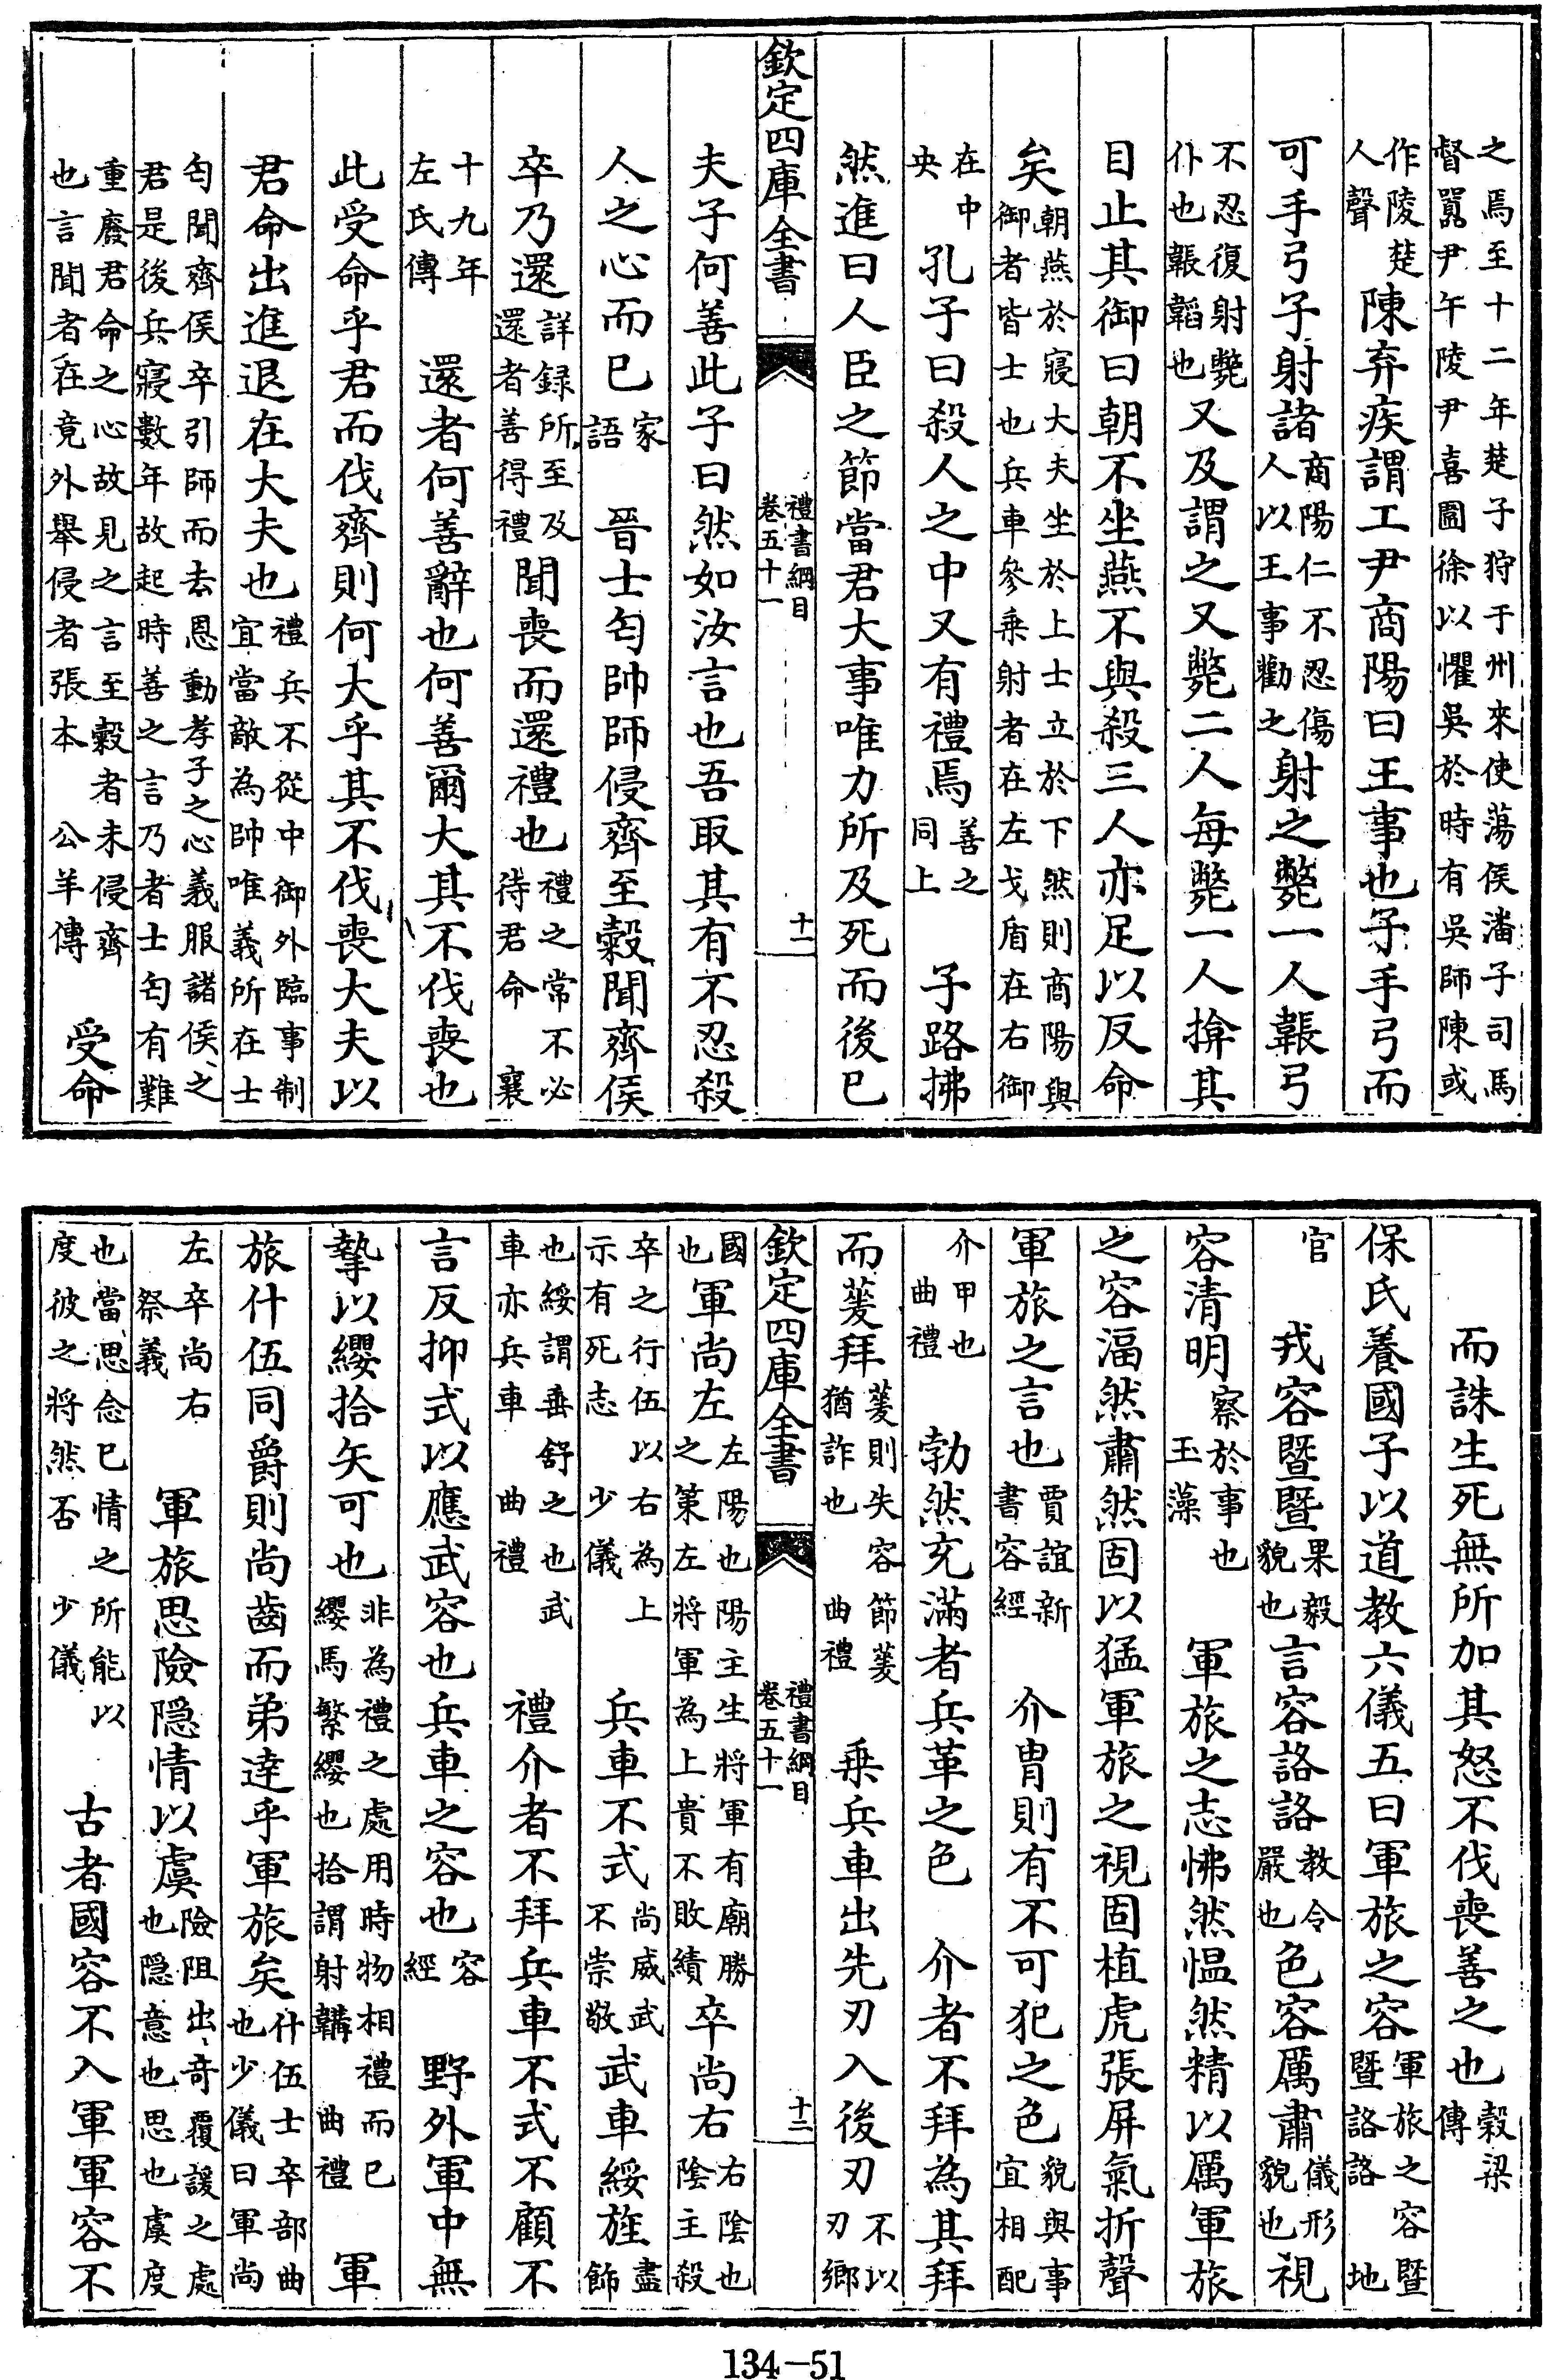 之焉至十二年楚子狩于州來使蕩侯潘子司馬
督囂尹午陵尹喜圍徐以懼吳於時有吳師陳或
作陵楚
人聲
陳弃疾謂工尹商陽曰王事也子手弓而
可手弓子射諸
商陽仁不忍傷
人以王事勸之
射之斃一人韔弓
不忍復射斃
仆也韔韜也
又及謂之又斃二人每斃一人揜其
目止其御曰朝不坐燕不與殺三人亦足以反命
矣
朝燕於寢大夫坐於上士立於下然則商陽與
御者皆士也兵車參乗射者在左戈盾在右御
在中
央
孔子曰殺人之中又有禮焉
善之
同上
子路拂
然進曰人臣之節當君大事唯力所及死而後已
欽定四庫全書
禮書綱目
卷五十一
十二
夫子何善此子曰然如汝言也吾取其有不忍殺
人之心而已
家
語
晉士匄帥師侵齊至穀聞齊侯
卒乃還
詳録所至及
還者善得禮
聞喪而還禮也
禮之常不必
待君命
襄
十九年
左氏傳
還者何善辭也何善爾大其不伐喪也
此受命乎君而伐齊則何大乎其不伐喪大夫以
君命出進退在大夫也
禮兵不從中御外臨事制
宜當敵為帥唯義所在士
匄聞齊侯卒引師而去恩動孝子之心義服諸侯之
君是後兵寢數年故起時善之言乃者士匄有難
重廢君命之心故見之言至穀者未侵齊
也言聞者在竟外舉侵者張本
公羊傳
受命
而誅生死無所加其怒不伐喪善之也
穀梁
傳
保氏養國子以道教六儀五曰軍旅之容
軍旅之容暨
暨詻詻
地
官
戎容暨暨
果毅
貌也
言容詻詻
教令
嚴也
色容厲肅
儀形
貌也
視
容清明
察於事也
玉藻
軍旅之志怫然愠然精以厲軍旅
之容湢然肅然固以猛軍旅之視固植虎張屏氣折聲
軍旅之言也
賈誼新
書容經
介胄則有不可犯之色
貌與事
宜相配
介甲也
曲禮
勃然充滿者兵革之色
介者不拜為其拜
而蓌拜
蓌則失容節蓌
猶詐也
曲禮
乗兵車出先刃入後刃
不以
刃鄉
欽定四庫全書
禮書綱目
卷五十一
十三
國
也
軍尚左
左陽也陽主生將軍有廟勝
之策左將軍為上貴不敗績
卒尚右
右陰也
陰主殺
卒之行伍以右為上
示有死志
少儀
兵車不式
尚威武
不崇敬
武車綏旌
盡
飾
也綏謂垂舒之也武
車亦兵車
曲禮
禮介者不拜兵車不式不顧不
言反抑式以應武容也兵車之容也
容
經
野外軍中無
摯以纓拾矢可也
非為禮之處用時物相禮而已
纓馬繁纓也拾謂射韝
曲禮
軍
旅什伍同爵則尚齒而弟達乎軍旅矣
什伍士卒部曲
也少儀曰軍尚
左卒尚右
祭義
軍旅思險隱情以虞
險阻出奇覆諼之處
也隱意也思也虞度
也當思念已情之所能以
度彼之將然否
少儀
古者國容不入軍軍容不
134-51